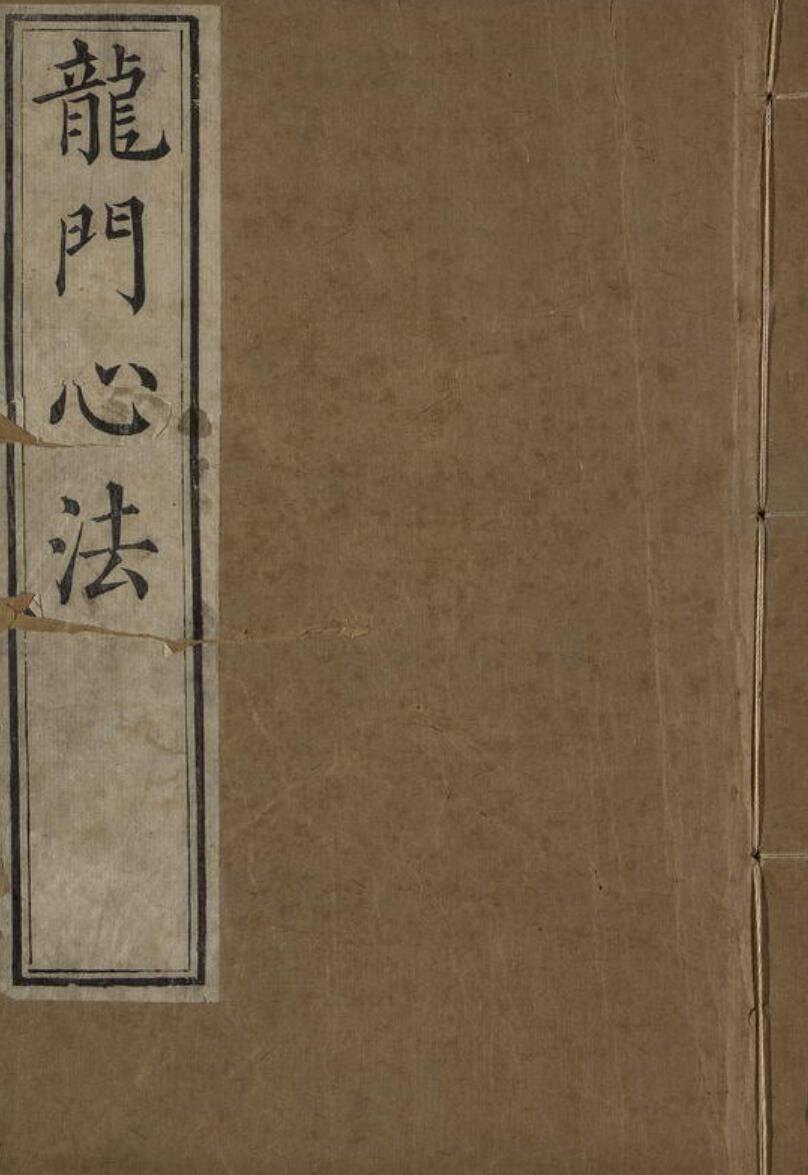 龍門心法